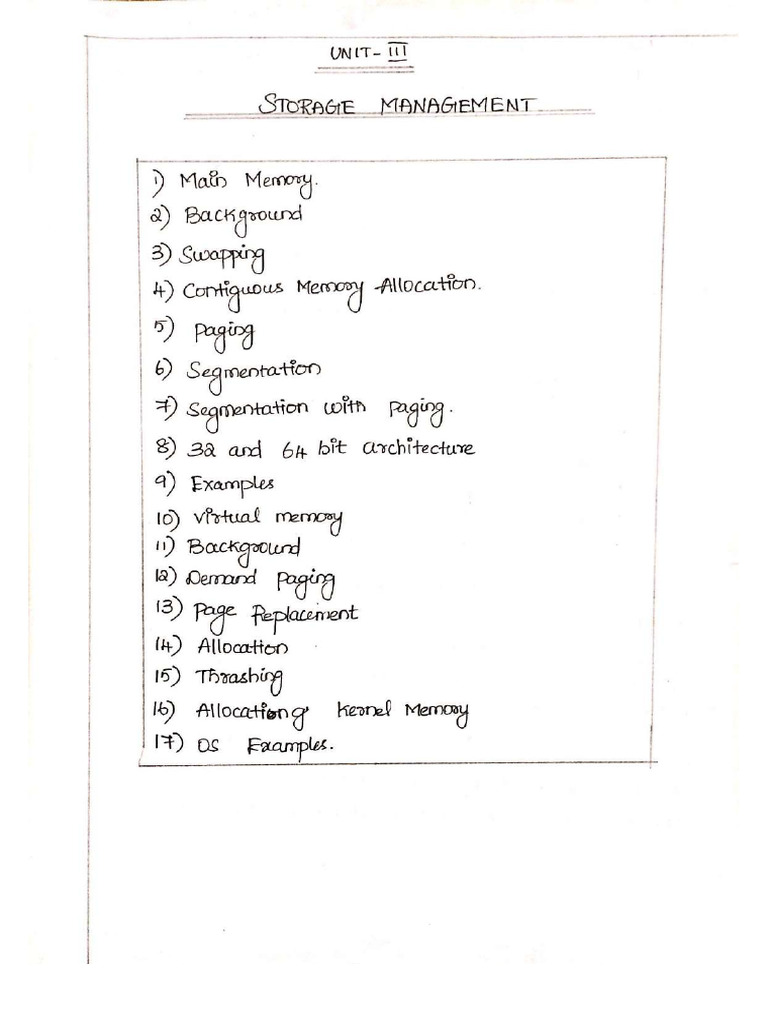 UNIT - III
STORAGE MANAGEMENT
1) Main Memory.
2) Background
3) Swapping
4) Contiguous Memory Allocation.
5) Paging
6) Segmentation
7) Segmentation with paging.
8) 32 and 64 bit architecture
9) Examples
10) Virtual memory
11) Background
12) Demand Paging
13) Page Replacement
14) Allocation
15) Thrashing
16) Allocationg Kernel Memory
17) OS Examples.